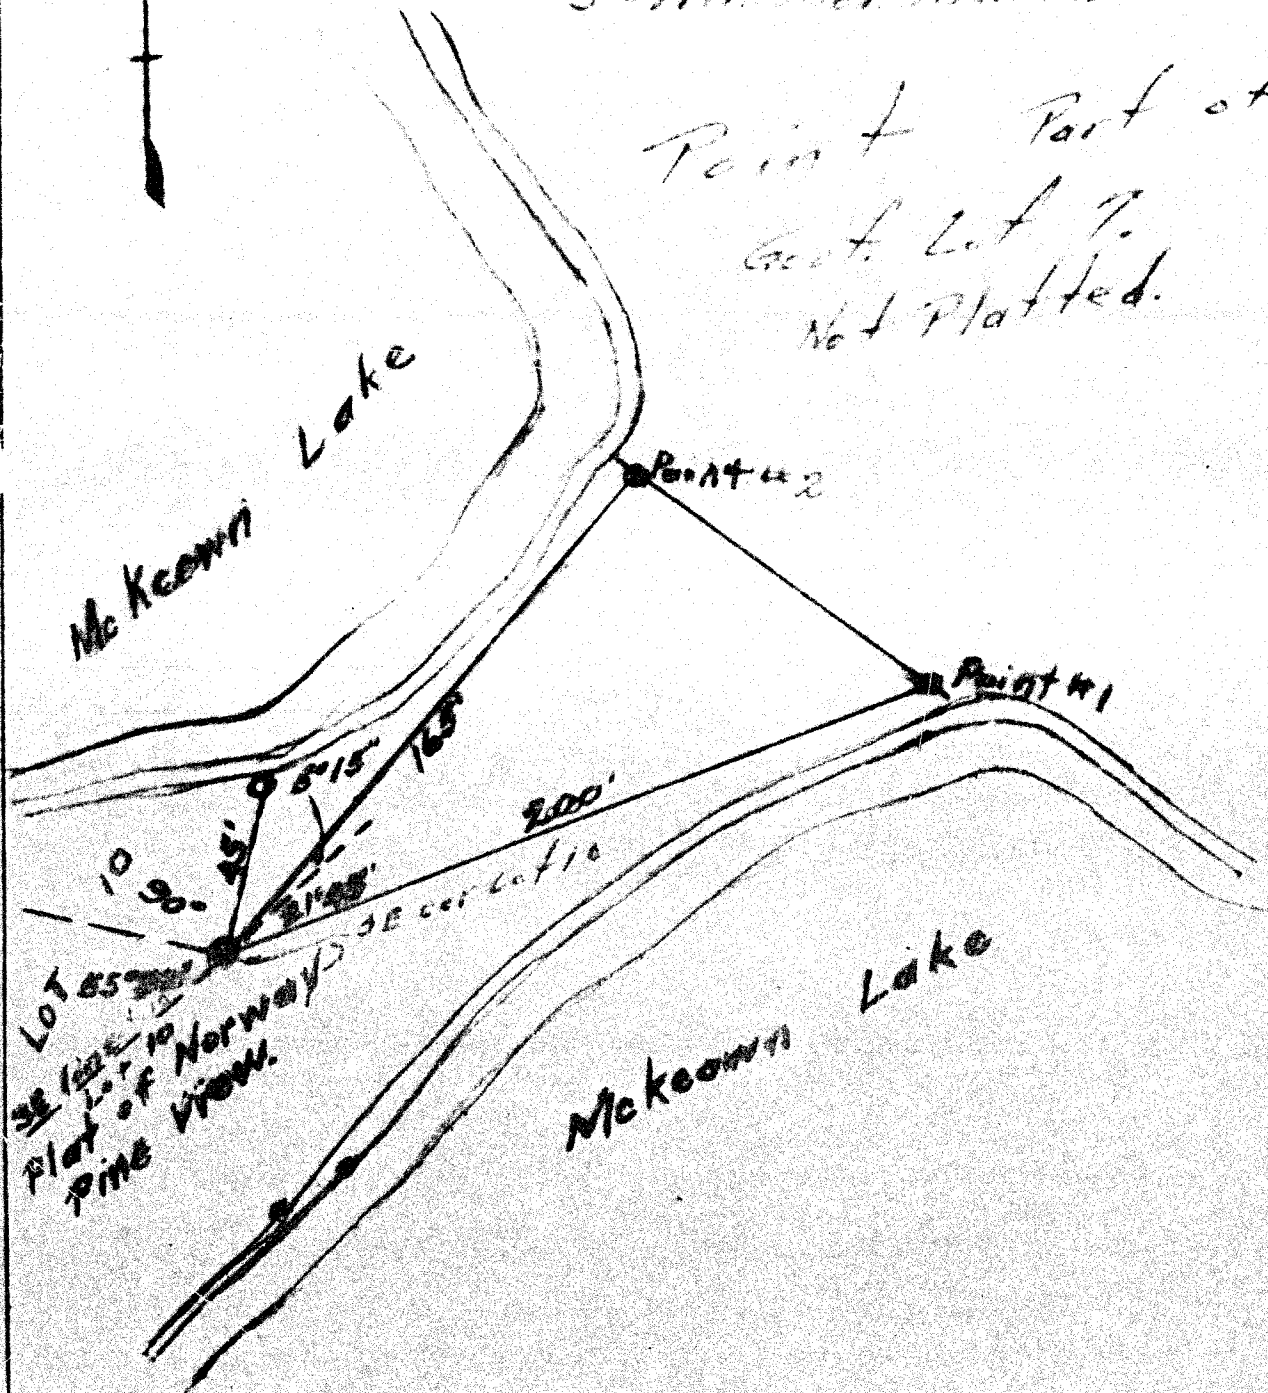 Point Part of
Govt. Lot 7.
Not Platted.
McKeown Lake
Point #2
Point #1
165'
5°15'
200'
45'
10
90°
SE cor Lot 10
LOT 55°
SE line
Lot 10
Plat of Norway
Pine View.
Mckeown Lake